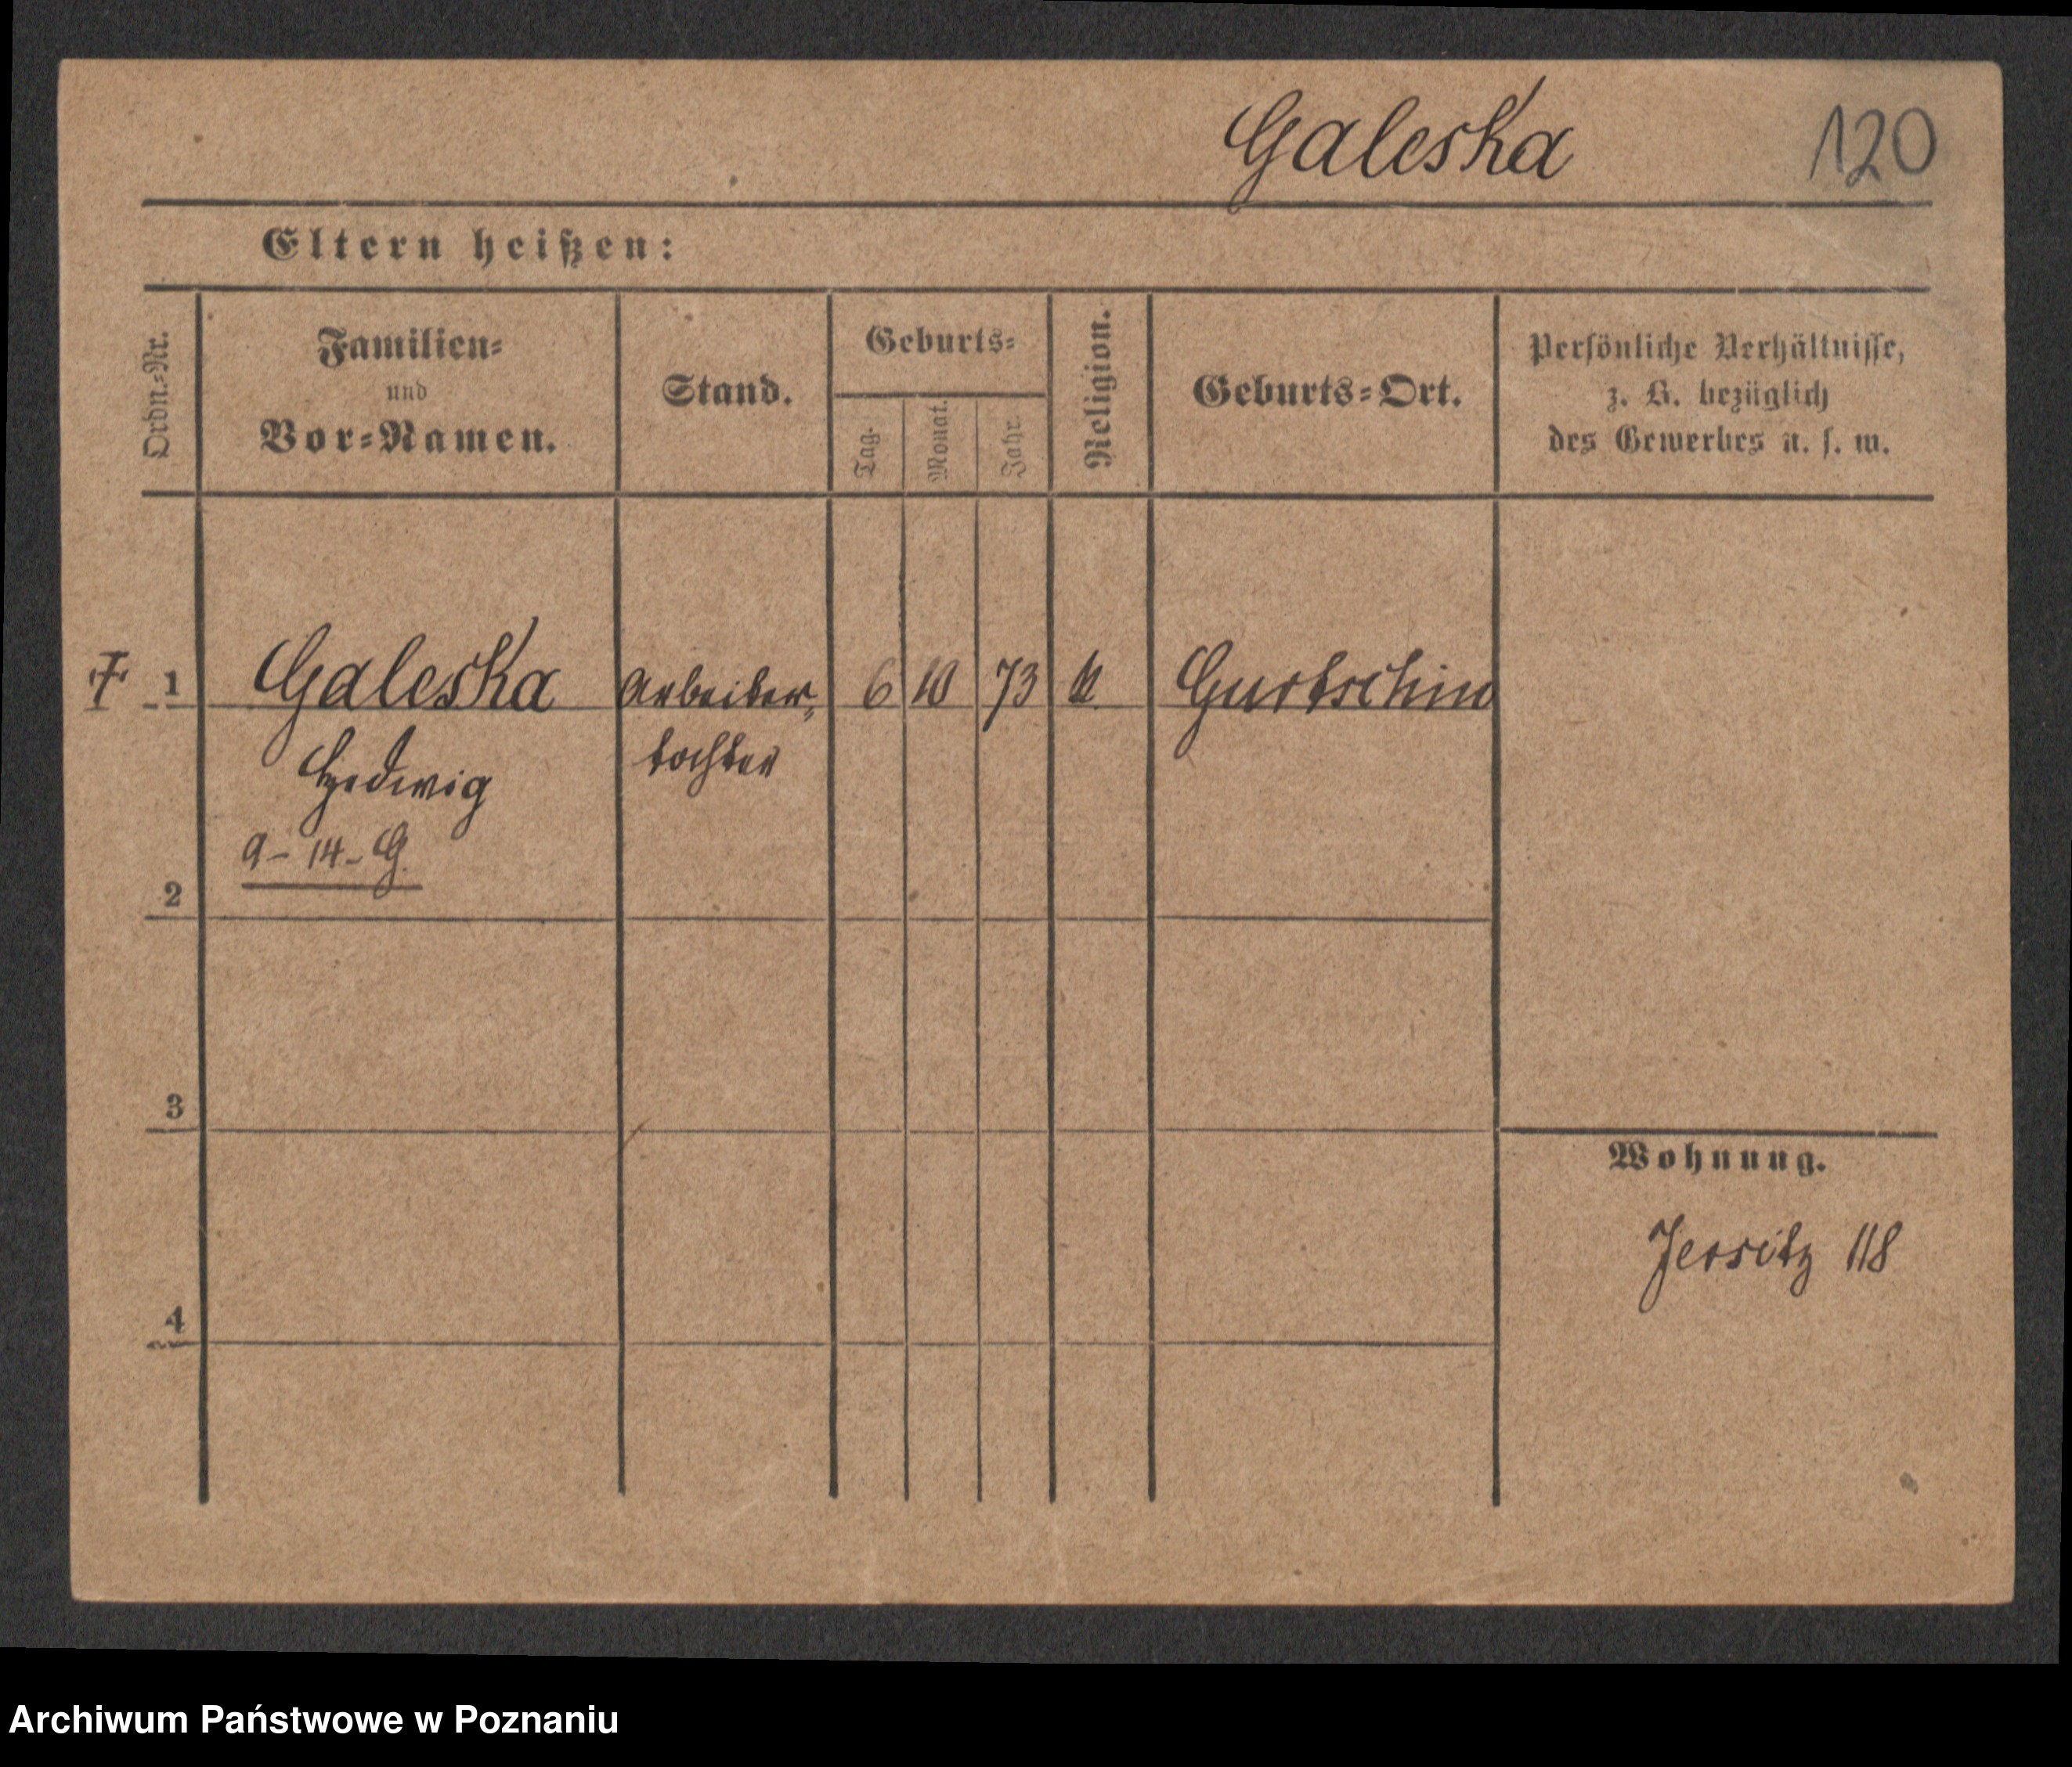 Galeska 120
Eltern heißen:
Ordn.-Nr.
Familien-
und
Vor-Namen.
Stand.
Geburts-
Tag.
Monat.
Jahr.
Religion.
Geburts-Ort.
Persönliche Verhältnisse,
z. B. bezüglich
des Gewerbes u. s. w.
1 Galeska Arbeiter- 6 10 73 k. Gurtschin
Hedwig tochter
9 - 14 - G.
2
3
Wohnung.
Jersitz 118
4
Archiwum Państwowe w Poznaniu